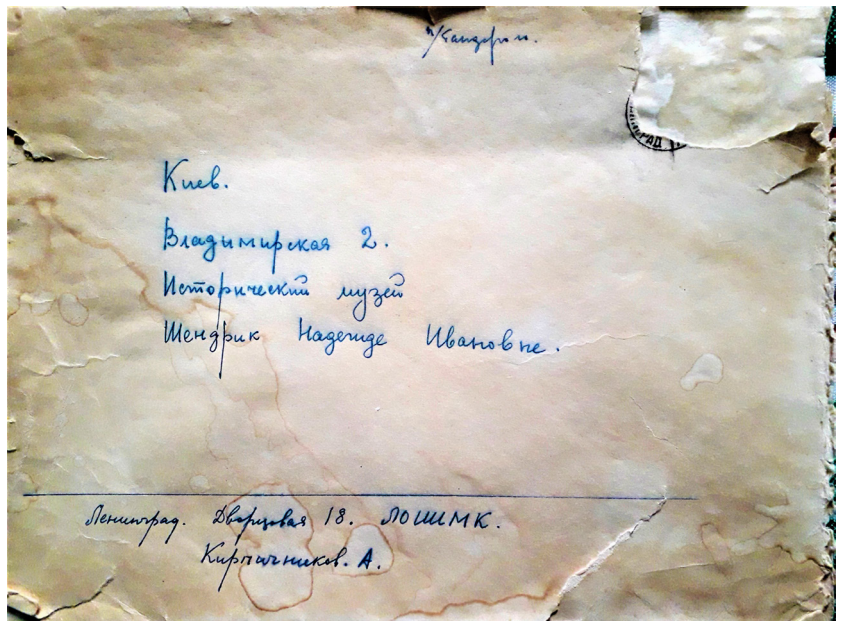 Киев.
Владимирская 2.
Исторический музей
Шендрик Надежде Ивановне.
Ленинград. Дворцовая 18. ЛОИИМК.
Кирпичников. А.